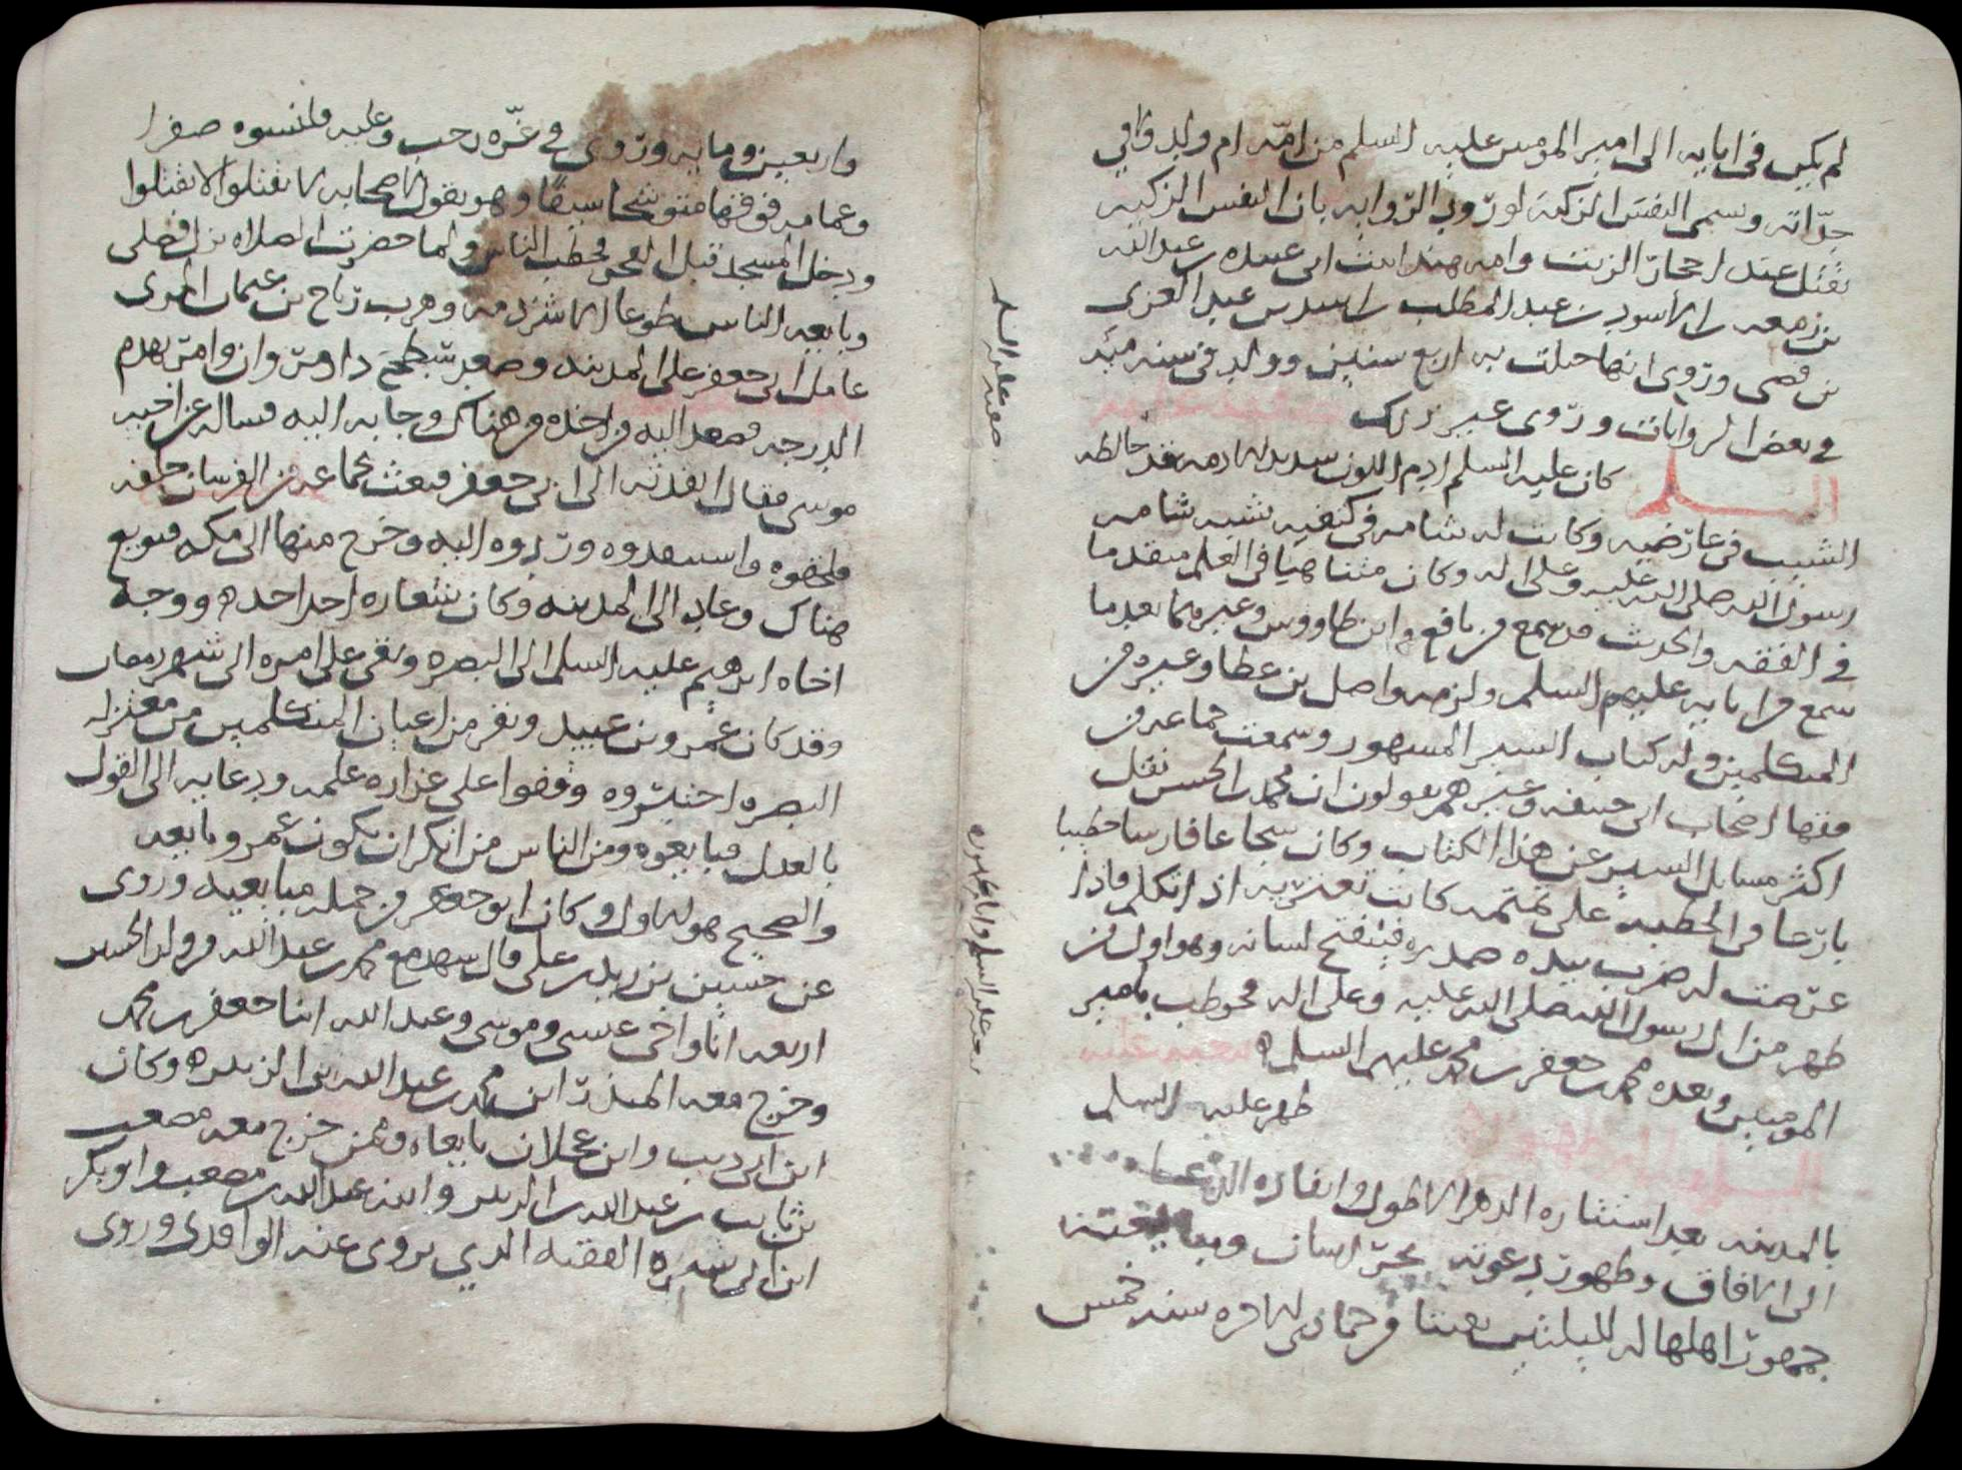 لم يكن في ابايه الى امير المومنين عليه السلم من امه ام ولد ولا في
جداته وسمي النفس الزكية لورود الروايه بان النفس الزكيه
تقتل عند احجار الزيت وامه هند ابنت ابي عبيده بن عبد الله
بن زمعه بن الاسود بن عبد المطلب بن اسد بن عبد العزى
بن قصي وروي انها حملت به اربع سنين وولد في سنه ميه
في بعض الروايات وروى غير ذلك
صفته عليه السلم
السلم كان عليه السلم ادم اللون شديد الادمه قد خالطه
الشيب في عارضيه وكانت له شامه في كتفيه تشبه شامه
رسول الله صلى الله عليه وعلى اله وكان متناهيا في العلم متقدما
في الفقه والحديث قد سمع من نافع وابن طاووس وغيرهما بعد ما
سمع من ابايه عليهم السلم ولزمه واصل بن عطا وغيره من
المتكلمين وله كتاب السير المشهور وسمعت جماعه من
فقها اصحاب ابي حنيفه وغيرهم يقولون ان محمد بن الحسن نقل
اكثر مسايل السير عن هذا الكتاب وكان شجاعا فارسا خطيبا
بارعا في الخطبه على تمتمه كانت تعتريه اذا تكلم فاذا
عرضت له ضرب بيده صدره فينفتح لسانه وهو اول من
ظهر من ال رسول الله صلى الله عليه وعلى اله فخوطب بامير
المومنين وبعده محمد بن جعفر بن محمد عليهم السلم
بيعته عليه السلم وايام ظهوره
ظهر عليه السلم
بالمدينه بعد استتاره الدهر الاطول وانفاذه الدعاه
الى الافاق وظهور دعوته بخراسان ومبايعته
جمهور اهلها له لليلتين بقيتا من جمادى الاخره سنه خمس
واربعين ومايه وروي في غره رجب وعليه قلنسوه صفرا
وعمامه فوقها متوشحا سيفا وهو يقول لاصحابه لا تقتلوا لا تقتلوا
ودخل المسجد قبل الفجر فخطب الناس ولما حضرت الصلاه نزل فصلى
وبايعه الناس طوعا الا شرذمه وهرب رباح بن عثمان المرى
عامل ابي جعفر على المدينه وصعد سطح دار مروان وامر بهدم
الدرجه فصعد اليه من اخذه من هناك وجا به اليه فساله عن اخيه
موسى فقال انفذته الى ابي جعفر فبعث بجماعه من الفرسان خلفه
فلحقوه واستنقذوه وردوه اليه وخرج منها الى مكه فبويع
هناك وعاد الى المدينه وكان شعاره احد احد ووجه
اخاه ابرهيم عليه السلم الى البصره وبقي على امره الى شهر رمضان
وقد كان عمرو بن عبيد ونفر من اعيان المتكلمين من معتزله
البصره اختبروه وقفوا على غزاره علمه ودعا به الى القول
بالعدل فبايعوه ومن الناس من انكر ان يكون عمرو بايعه
والصحيح هو الاول وكان ابو جعفر من جمله مبايعيه وروى
عن حسين بن زيد بن علي قال شهد مع محمد بن عبد الله من ولد الحسين
اربعه انا واخي عيسى وموسى وعبد الله ابنا جعفر بن محمد
وخرج معه المنذر ابن محمد بن عبد الله بن الزبير وكان
ابن ابي ذيب وابن عجلان بايعاه وممن خرج معه مصعب
بن ثابت بن عبد الله بن الزبير وابنه عبد الله بن مصعب وابو بكر
ابن ابي سبره الفقيه الذي يروى عنه الواقدي وروى